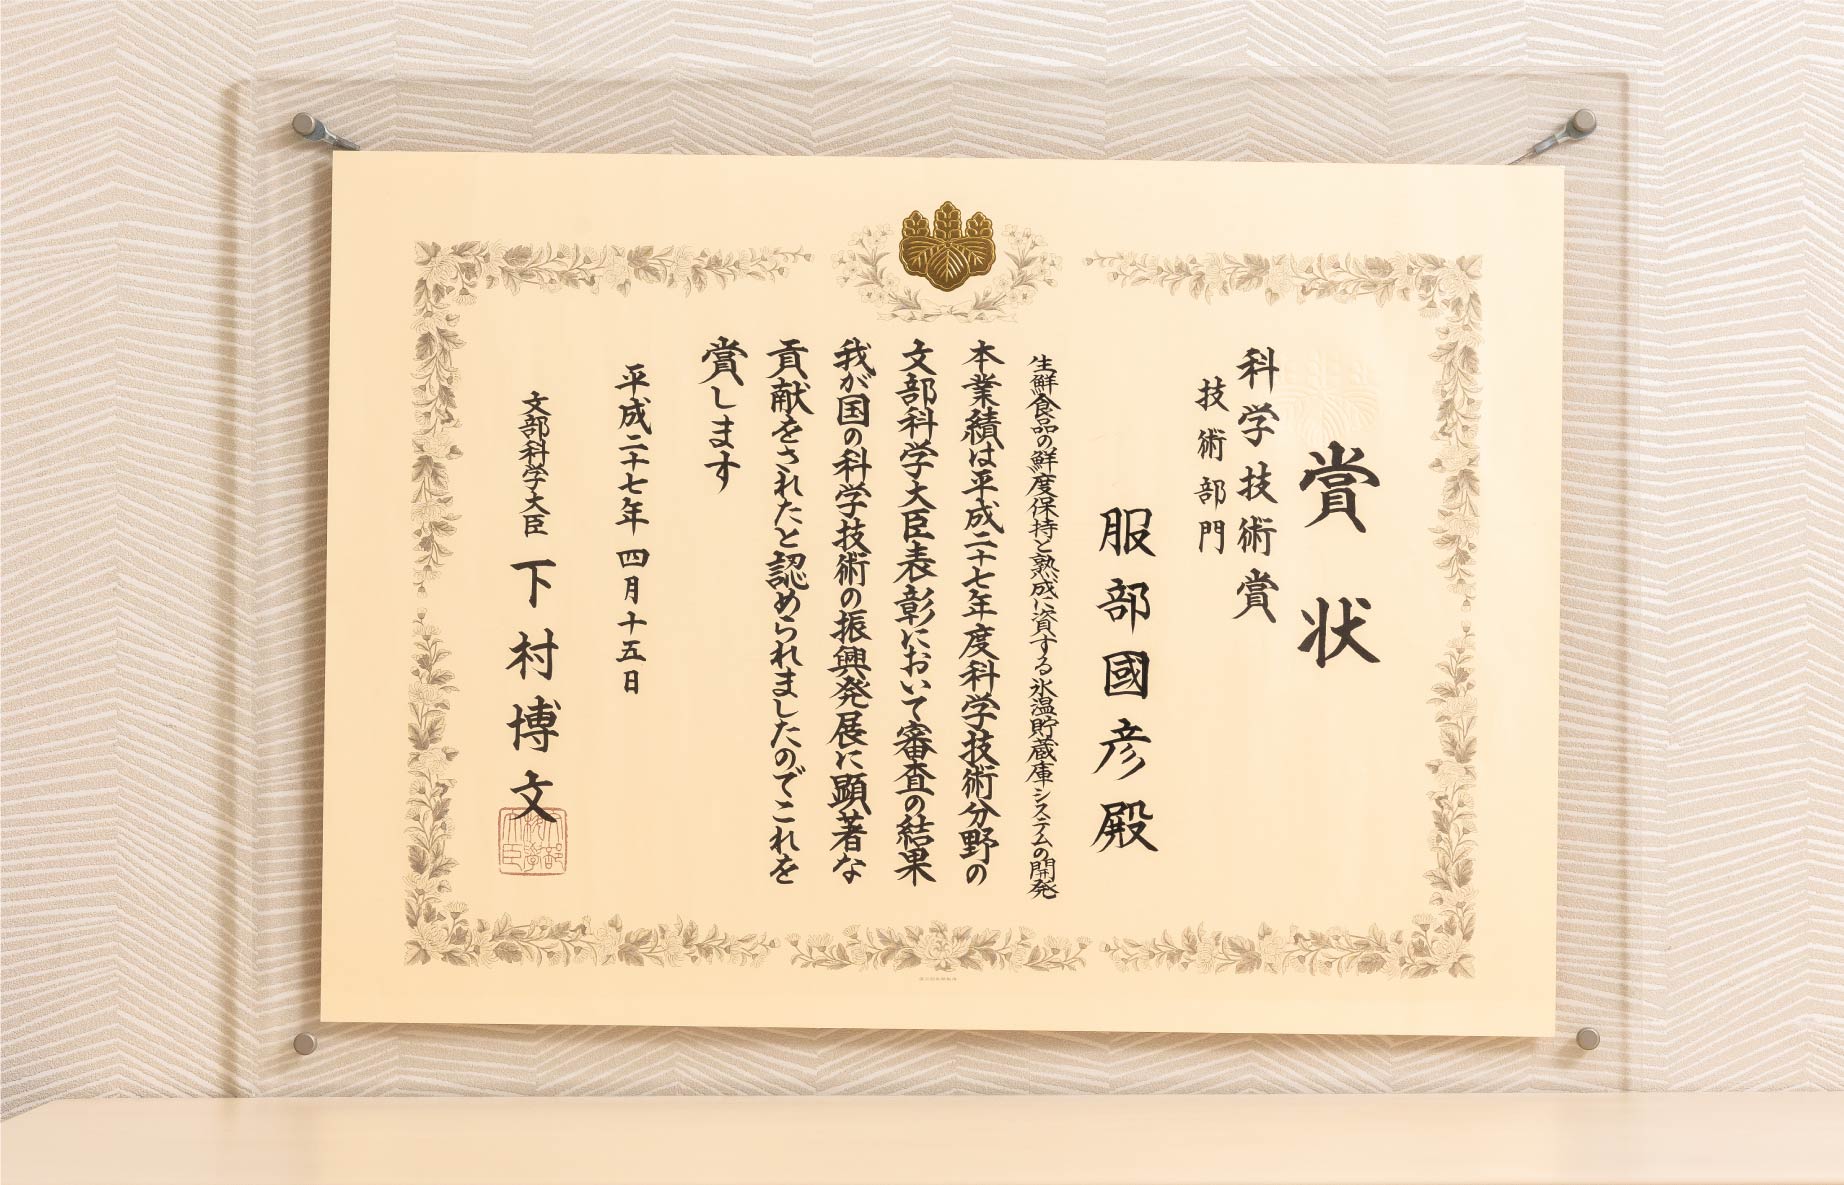 賞状
科学技術賞
技術部門
服部國彦殿
生鮮食品の鮮度保持と熟成に資する氷温貯蔵庫システムの開発
本業績は平成二十七年度科学技術分野の
文部科学大臣表彰において審査の結果
我が国の科学技術の振興発展に顕著な
貢献をされたと認められましたのでこれを
賞します
平成二十七年四月十五日
文部科学大臣 下村博文